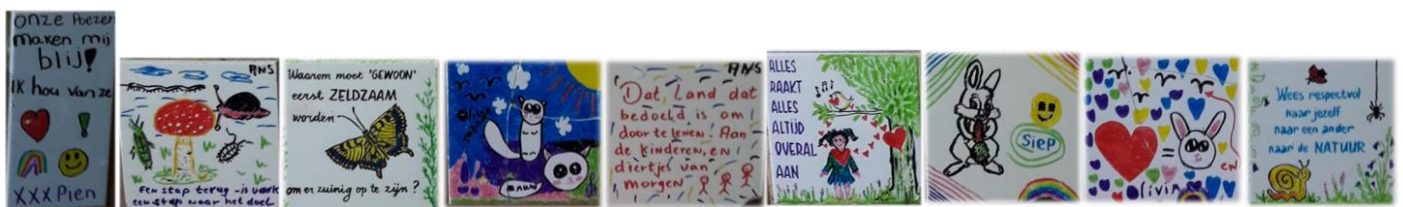 onze Poezen
maken mij
blij!
IK hou van ze
XXX Pien
ANS
Een stap terug - is vaak
een stap naar het doel
Waarom moet 'GEWOON'
eerst ZELDZAAM
worden
om er zuinig op te zijn?
Olivia
mauw
ANS
Dat, Land dat
bedoeld is om
door te leven! Aan
de kinderen, en
diertjes van
morgen
ALLES
RAAKT
ALLES
ALTIJD
OVERAL
AAN
Siep
=
en
Olivia
Wees respectvol
naar jezelf
naar een ander
naar de NATUUR